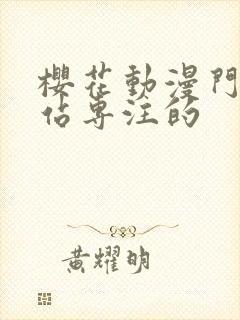 櫻花動漫門
佔專注的
黃耀明